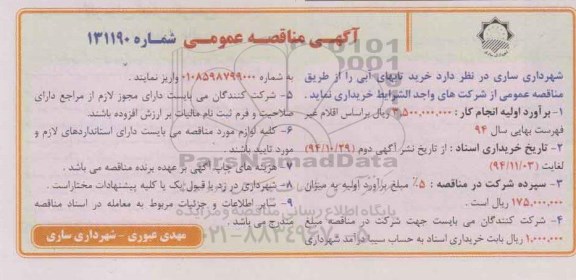 آگهی مناقصه عمومی شماره ۱۳۱۱۹۰
شهرداری ساری در نظر دارد خرید تانکهای آبی را از طریق
مناقصه عمومی از شرکت های واجد الشرایط خریداری نماید.
۱- برآورد اولیه انجام کار: ۳,۵۰۰,۰۰۰,۰۰۰ ریال براساس اقلام غیر
فهرست بهایی سال ۹۴
۲- تاریخ خریداری اسناد: از تاریخ نشر آگهی دوم (۹۴/۱۰/۲۹)
لغایت (۹۴/۱۱/۰۳)
۳- سپرده شرکت در مناقصه: ۵٪ مبلغ برآورد اولیه به میزان
۱۷۵,۰۰۰,۰۰۰ ریال است.
۴- شرکت کنندگان می بایست جهت شرکت در مناقصه مبلغ
۱,۰۰۰,۰۰۰ ریال بابت خریداری اسناد به حساب سیبا درآمد شهرداری
به شماره ۰۱۰۸۵۹۸۷۹۹۰۰۰ واریز نمایند.
۵- شرکت کنندگان می بایست دارای مجوز لازم از مراجع دارای
صلاحیت و فرم ثبت نام مالیات بر ارزش افزوده باشند.
۶- کلیه لوازم مورد مناقصه می بایست دارای استانداردهای لازم و
مورد تایید باشند.
۷- هزینه های چاپ آگهی بر عهده برنده مناقصه می باشد.
۸- شهرداری در رد یا قبول یک یا کلیه پیشنهادات مختار است.
۹- سایر اطلاعات و جزئیات مربوط به معامله در اسناد مناقصه
مندرج می باشد.
مهدی عبوری - شهرداری ساری
ParsNamadData
پایگاه اطلاع رسانی مناقصه و مزایده
۰۲۱-۸۸۳۴۹۶۷۰-۵